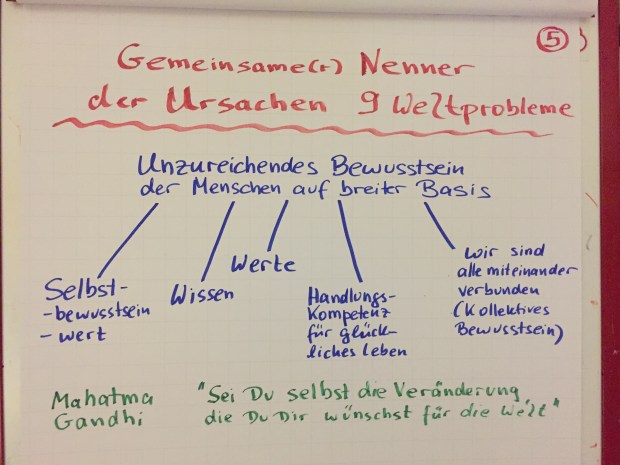 5
Gemeinsame(r) Nenner
der Ursachen 9 Weltprobleme
Unzureichendes Bewusstsein
der Menschen auf breiter Basis
Selbst-
-bewusstsein
-wert
Wissen
Werte
Handlungs-
Kompetenz
für glück-
liches Leben
Wir sind
alle miteinander
verbunden
(Kollektives
Bewusstsein)
Mahatma
Gandhi
"Sei Du selbst die Veränderung,
die Du Dir wünschst für die Welt"